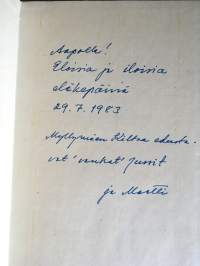 Aapolle!
Eloisia ja iloisia
eläkepäiviä
29.7.1983
Myllymäen Kiltaa edusta-
vat "vanhat" Jussit
ja Martti